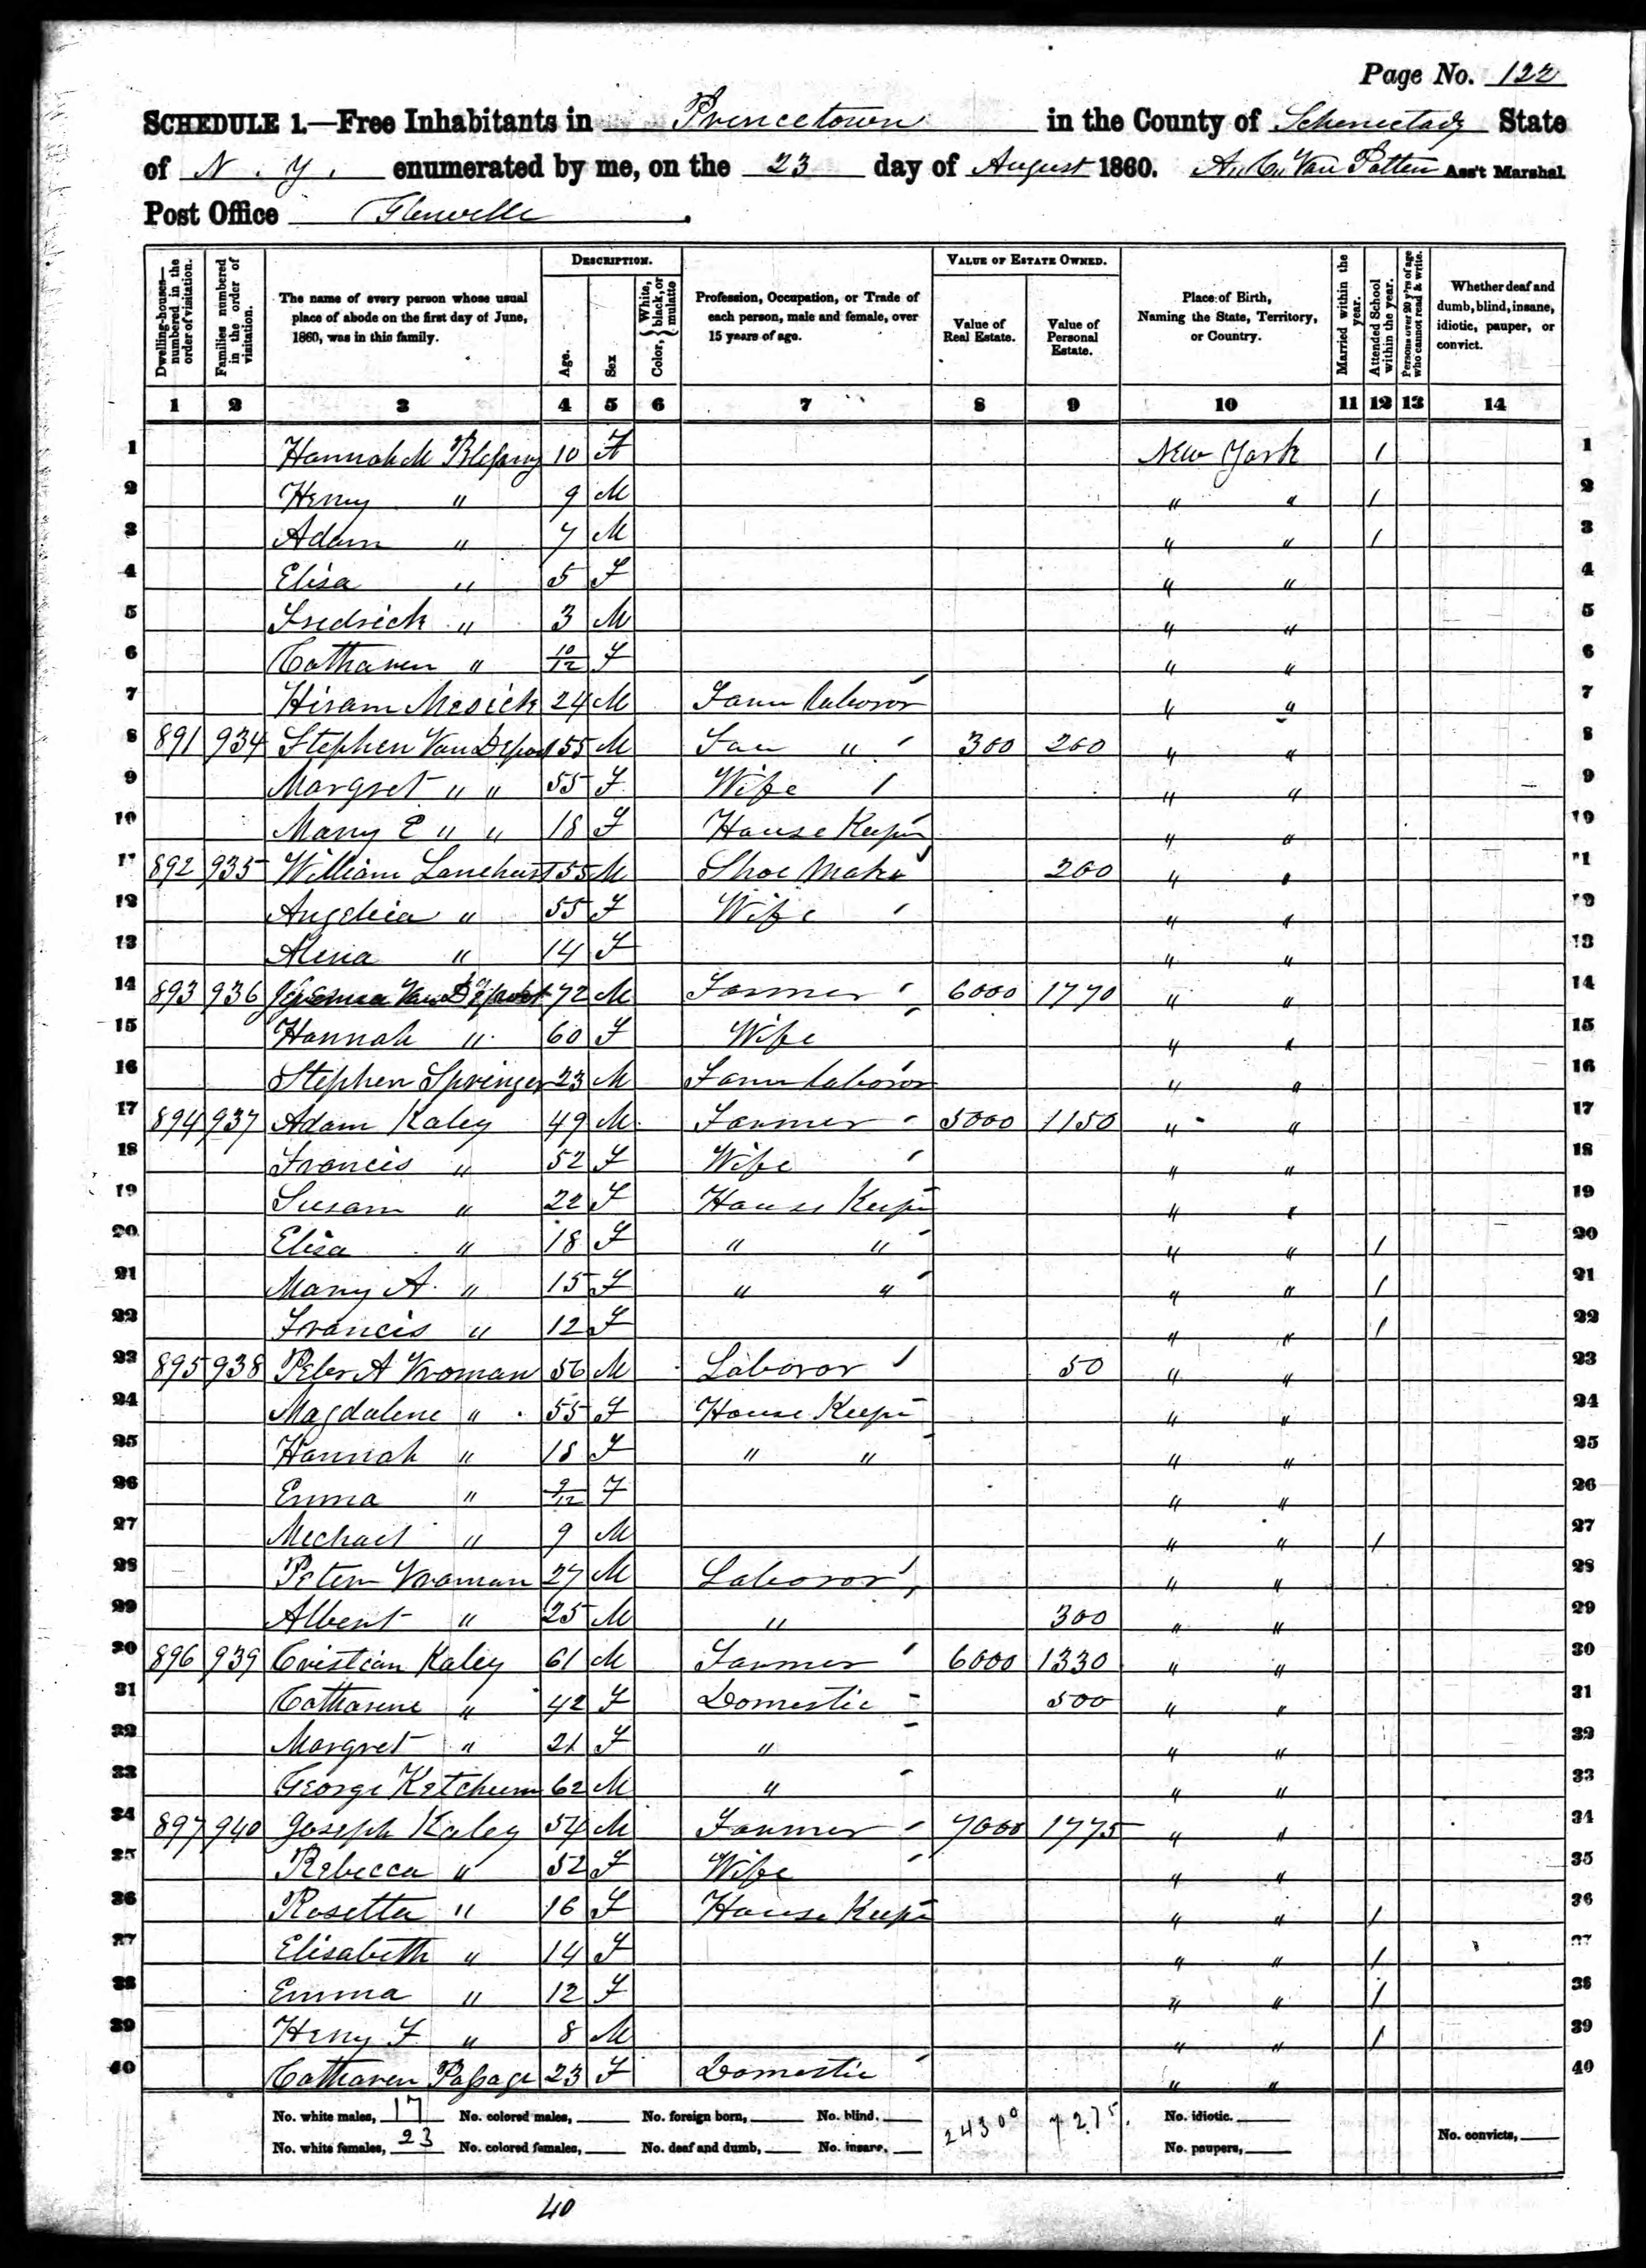 Page No. 122
SCHEDULE 1.—Free Inhabitants in Princetown in the County of Schenectady State
of N. Y. enumerated by me, on the 23 day of August 1860. A. C. Van Patten Ass't Marshal.
Post Office Glenville.
Dwelling-houses—numbered in the order of visitation.
Families numbered in the order of visitation.
The name of every person whose usual place of abode on the first day of June, 1860, was in this family.
DESCRIPTION.
Age.
Sex
Color, { White, black, or mulatto
Profession, Occupation, or Trade of each person, male and female, over 15 years of age.
VALUE OF ESTATE OWNED.
Value of Real Estate.
Value of Personal Estate.
Place of Birth, Naming the State, Territory, or Country.
Married within the year.
Attended School within the year.
Persons over 20 y'rs of age who cannot read & write.
Whether deaf and dumb, blind, insane, idiotic, pauper, or convict.
1 2 3 4 5 6 7 8 9 10 11 12 13 14
1 Hannah M 10 F New York / 1
2 Henry " 9 M " " / 2
3 Adam " 7 M " " / 3
4 Elisa " 5 F " " 4
5 Fredrick " 3 M " " 5
6 Catharen " 10/12 F " " 6
7 Hiram Mesick 24 M Farm Laboror " " 7
8 891 934 Stephen Van 55 M Far " 300 200 " " 8
9 Margret " " 55 F Wife " " 9
10 Marry E " " 18 F House Keepin " " 10
11 892 935 William Lanehart 55 M Shoe Maker 200 " " 11
12 Angelica " 55 F Wife " " 12
13 Alena " 14 F " " 13
14 893 936 Van 72 M Farmer 6000 1770 " " 14
15 Hannah " 60 F Wife " " 15
16 Stephen Springer 23 M Farm laboror " " 16
17 894 937 Adam Kaley 49 M Farmer 5000 1150 " " 17
18 Francis " 52 F Wife " " 18
19 Susam " 22 F House Keepin " " 19
20 Elisa " 18 F " " " " / 20
21 Mary A. " 15 F " " " " / 21
22 Francis " 12 F " " / 22
23 895 938 Peter A Vroman 56 M Laboror 50 " " 23
24 Magdalene " 55 F House Keepin " " 24
25 Hannah " 18 F " " " " 25
26 Emma " 9/12 F " " 26
27 Mechael " 9 M " " / 27
28 Peter Vroman 27 M Laboror " " 28
29 Albert " 25 M " 300 " " 29
30 896 939 Cristian Kaley 61 M Farmer 6000 1330 " " 30
31 Catharine " 42 F Domestic 500 " " 31
32 Margret " 21 F " " " 32
33 George Ketchum 62 M " " " 33
34 897 940 Joseph Kaley 54 M Farmer 7000 1775 " " 34
35 Rebecca " 52 F Wife " " 35
36 Rosetta " 16 F House Keepin " " / 36
37 Elisabeth " 14 F " " / 37
38 Emma " 12 F " " / 38
39 Henry F " 8 M " " / 39
40 Catharen Passage 23 F Domestic " " 40
No. white males, 17 No. colored males, No. foreign born, No. blind, 24300 7275. No. idiotic.
No. white females, 23 No. colored females, No. deaf and dumb, No. insane, No. paupers, No. convicts,
40